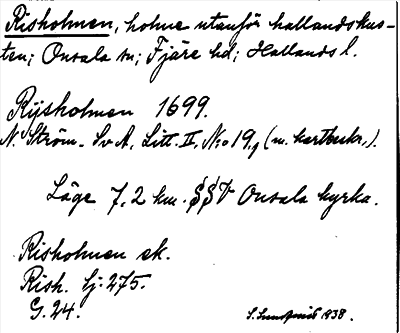 Risholmen, holme utanför hallandskus-
ten; Onsala sn; Fjäre hd; Hallands l.
Rijsholmen 1699.
N. Ström. SvA, Litt. II, No 19, (m. kartbeskr.).
Läge 7,2 km. SSV Onsala kyrka.
Risholmen ek.
Rish. bj. 275.
G. 24.
S. 1938.